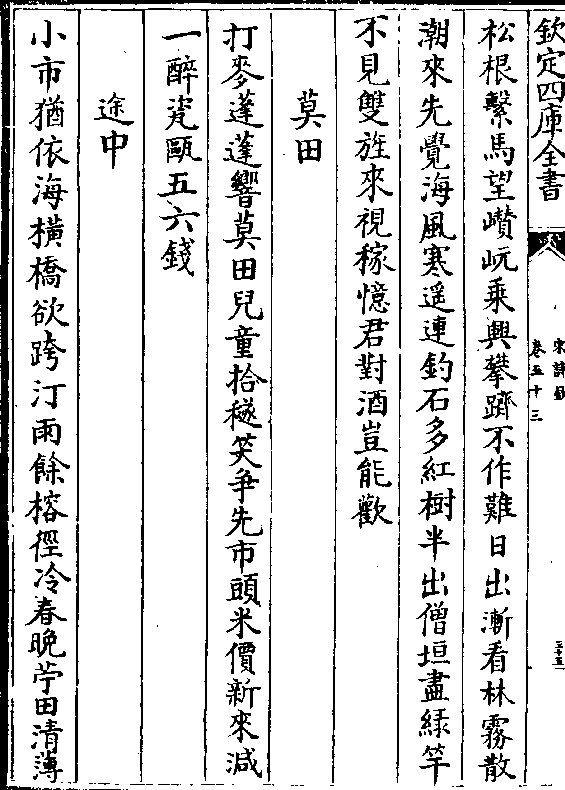 欽定四庫全書
宋詩鈔
卷五十三
三十五
松根繫馬望巑岏乗興攀躋不作難日出漸看林霧散
潮來先覺海風寒遥連釣石多紅樹半出僧垣盡緑竿
不見雙旌來視稼憶君對酒豈能歡
莫田
打麥蓬蓬響莫田兒童拾穟笑争先市頭米價新來減
一醉瓷甌五六錢
途中
小市猶依海横橋欲跨汀雨餘榕徑冷春晩苧田清薄